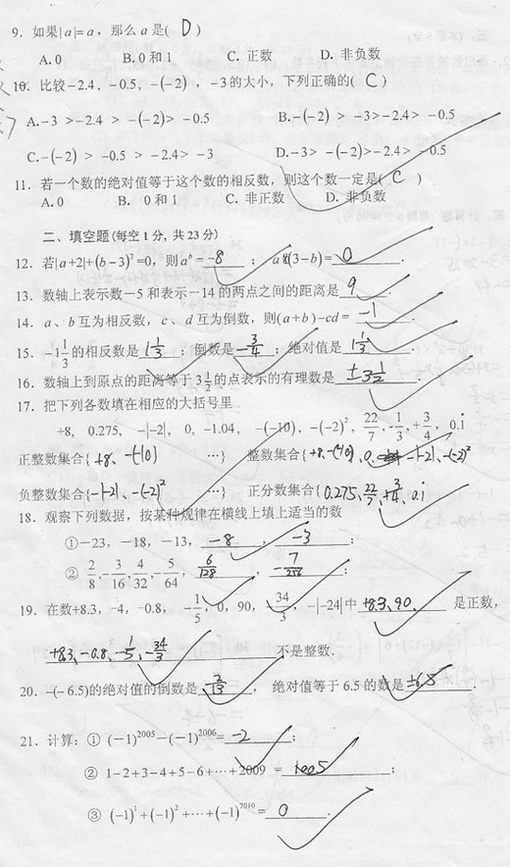 9. 如果|a|=a，那么 a 是( D )
A.0 B. 0 和 1 C. 正数 D. 非负数
10. 比较-2.4，-0.5，-(-2)，-3的大小，下列正确的( C )
A.-3 >-2.4 > -(-2)> -0.5 B.-(-2) > -3>-2.4> -0.5
C.-(-2) > -0.5 > -2.4> -3 D.-3> -(-2)>-2.4> -0.5
11. 若一个数的绝对值等于这个数的相反数，则这个数一定是( C )
A. 0 B. 0和1 C. 非正数 D. 非负数
二、填空题(每空 1 分, 共 23 分)
12. 若|a+2|+(b-3)²=0，则 aᵇ = -8 ； a(3-b)= 0 .
13. 数轴上表示数-5 和表示-14 的两点之间的距离是 9 .
14. a、b 互为相反数，c、d 互为倒数，则(a+b)-cd= -1 .
15. -1 1/3 的相反数是 1 1/3 ；倒数是 -3/4 ；绝对值是 1 1/3 .
16. 数轴上到原点的距离等于 3 1/2 的点表示的有理数是 ±3 1/2 .
17. 把下列各数填在相应的大括号里
+8, 0.275, -|-2|, 0, -1.04, -(-10), -(-2)², 22/7, -1/3, +3/4, 0.i
正整数集合{ +8、-(-10) …} 整数集合{ +8、-(-10)、0、-|-2|、-(-2)²
负整数集合{-|-2|、-(-2)² …} 正分数集合{ 0.275、22/7、+3/4、0.i
18. 观察下列数据，按某种规律在横线上填上适当的数
①-23，-18，-13， -8 ， -3 ；
② 2/8, -3/16, 4/32, -5/64, 6/128 , -7/256 ;
19. 在数+8.3，-4，-0.8， -1/5，0，90， -34/3，-|-24|中 +8.3、90、 是正数，
+8.3、-0.8、-1/5、-34/3 不是整数.
20. -(-6.5)的绝对值的倒数是 2/13 ， 绝对值等于 6.5 的数是 ±6.5 .
21. 计算：① (-1)²⁰⁰⁵-(-1)²⁰⁰⁶= -2 ；
② 1-2+3-4+5-6+⋯+2009 = 1005 ；
③ (-1)¹+(-1)²+⋯+(-1)²⁰¹⁰= 0 .